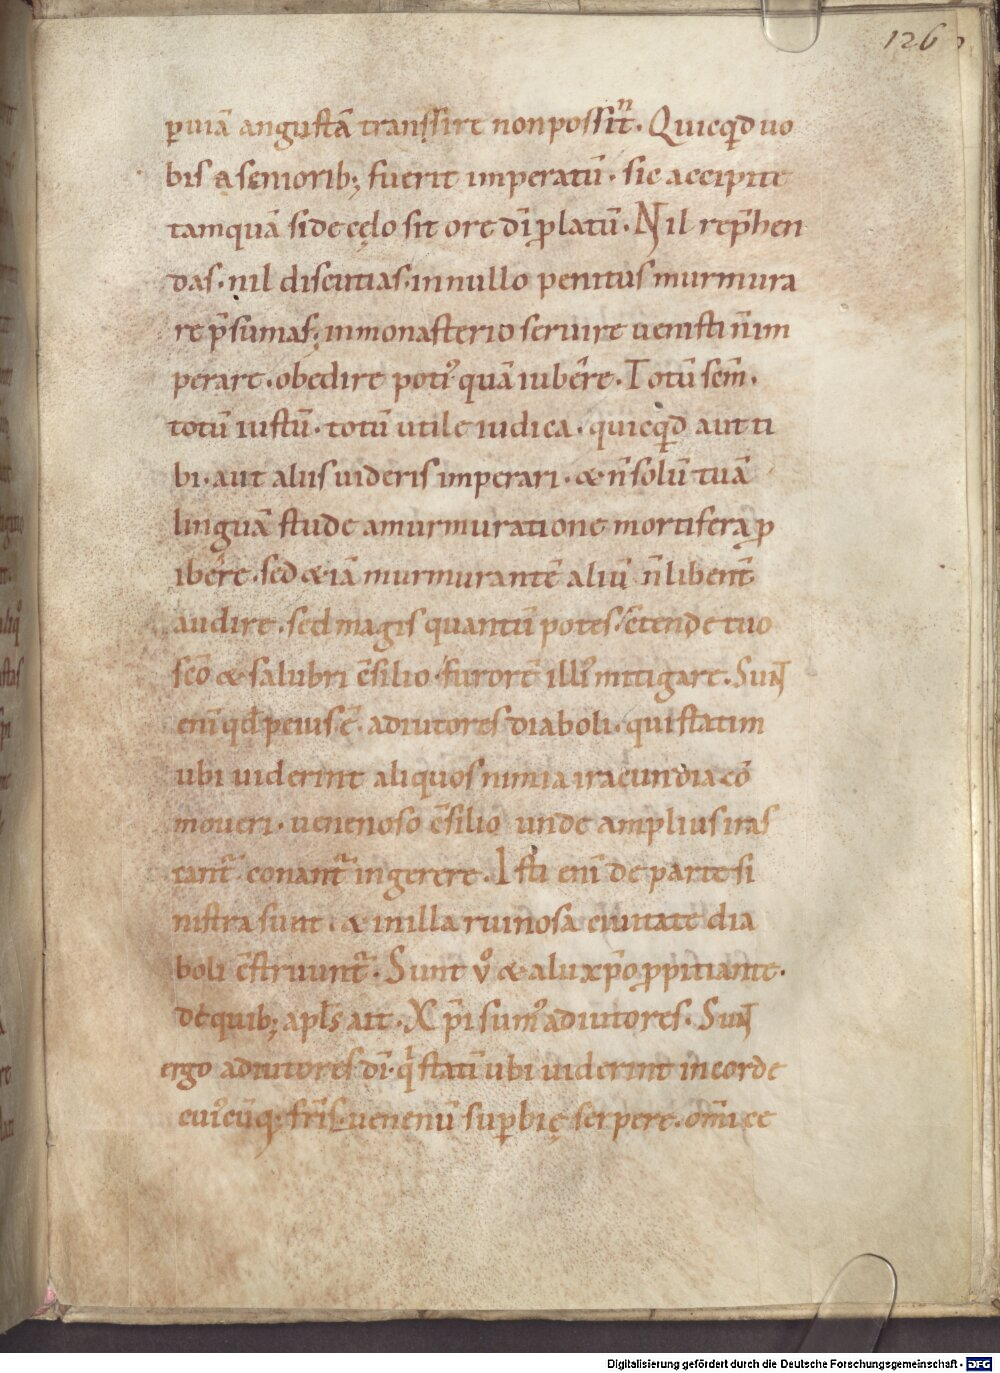 126
ꝑuiā angustā transsire nonpossiñt. Quicq̄d uo
bis a seniorib; fuerit imperatū. sic accipite
tamquā si de cęlo sit ore dī ꝓlatū. Nil rep̄hen
das. nil discutias. in nullo penitus murmura
re p̄sumas. in monasterio seruire uenisti n̄ im
perare. obedire poti᷒ quā iubēre. Totū sc̄m.
totū iustū. totū utile iudica. quicq̄d aut ti
bi. aut aliis uideris imperari. & n̄ solū tuā
linguā stude a murmuratione mortifera ꝓ
ibēre. sed & iā murmurantē aliū n̄ libent̄
audire. sed magis quantū potes. c̄tende tuo
sc̄o & salubri c̄silio furorē illi᷒ mitigare. Sunt
eni qđ peius ē. adiutores diaboli. qui statim
ubi uiderint aliquos nimia iracundia cō
moueri. uenenoso c̄silio unde amplius iras
cant᷑. conant᷑ ingerere. Isti eni de parte si
nistra sunt. & in illa ruinosa ciuitate dia
boli c̄struunt᷑. Sunt v̊ & alii xp̄o ꝓpitiante.
de quib; apl̄s ait. Xp̄i sum᷒ adiutores. Sunt
ergo adiutores dī. q̄ statī ubi uiderint in corde
cui᷒cūq; fr̄is. uenenū suꝑbię serpere. om̄i ce
Digitalisierung gefördert durch die Deutsche Forschungsgemeinschaft - DFG